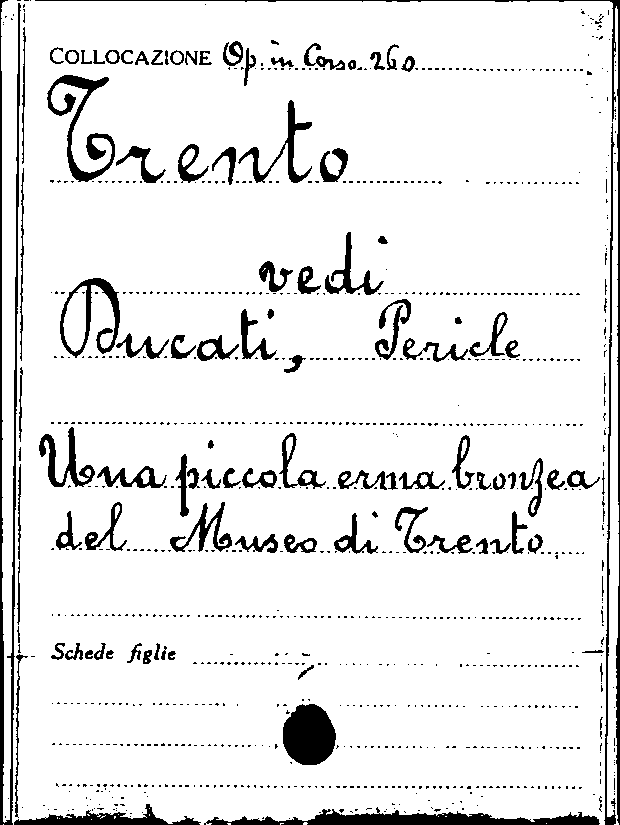 COLLOCAZIONE Op. in Corso 260
Trento
vedi
Ducati, Pericle
Una piccola erma bronzea
del Museo di Trento
Schede figlie